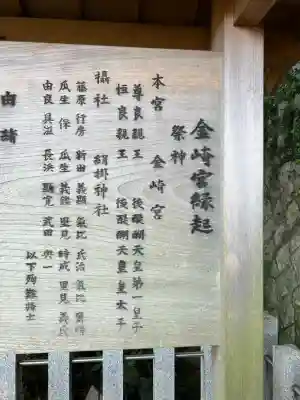 金崎宮縁起
祭神
本宮 金崎宮
尊良親王 後醍醐天皇第一皇子
恒良親王 後醍醐天皇皇太子
摂社 絹掛神社
藤原行房 新田義顕 氣比氏治 氣比齊晴
瓜生保 瓜生義鑑 里見時成 里見義氏
由良具滋 長浜顕寛 武田與一
以下殉難将士
由緒